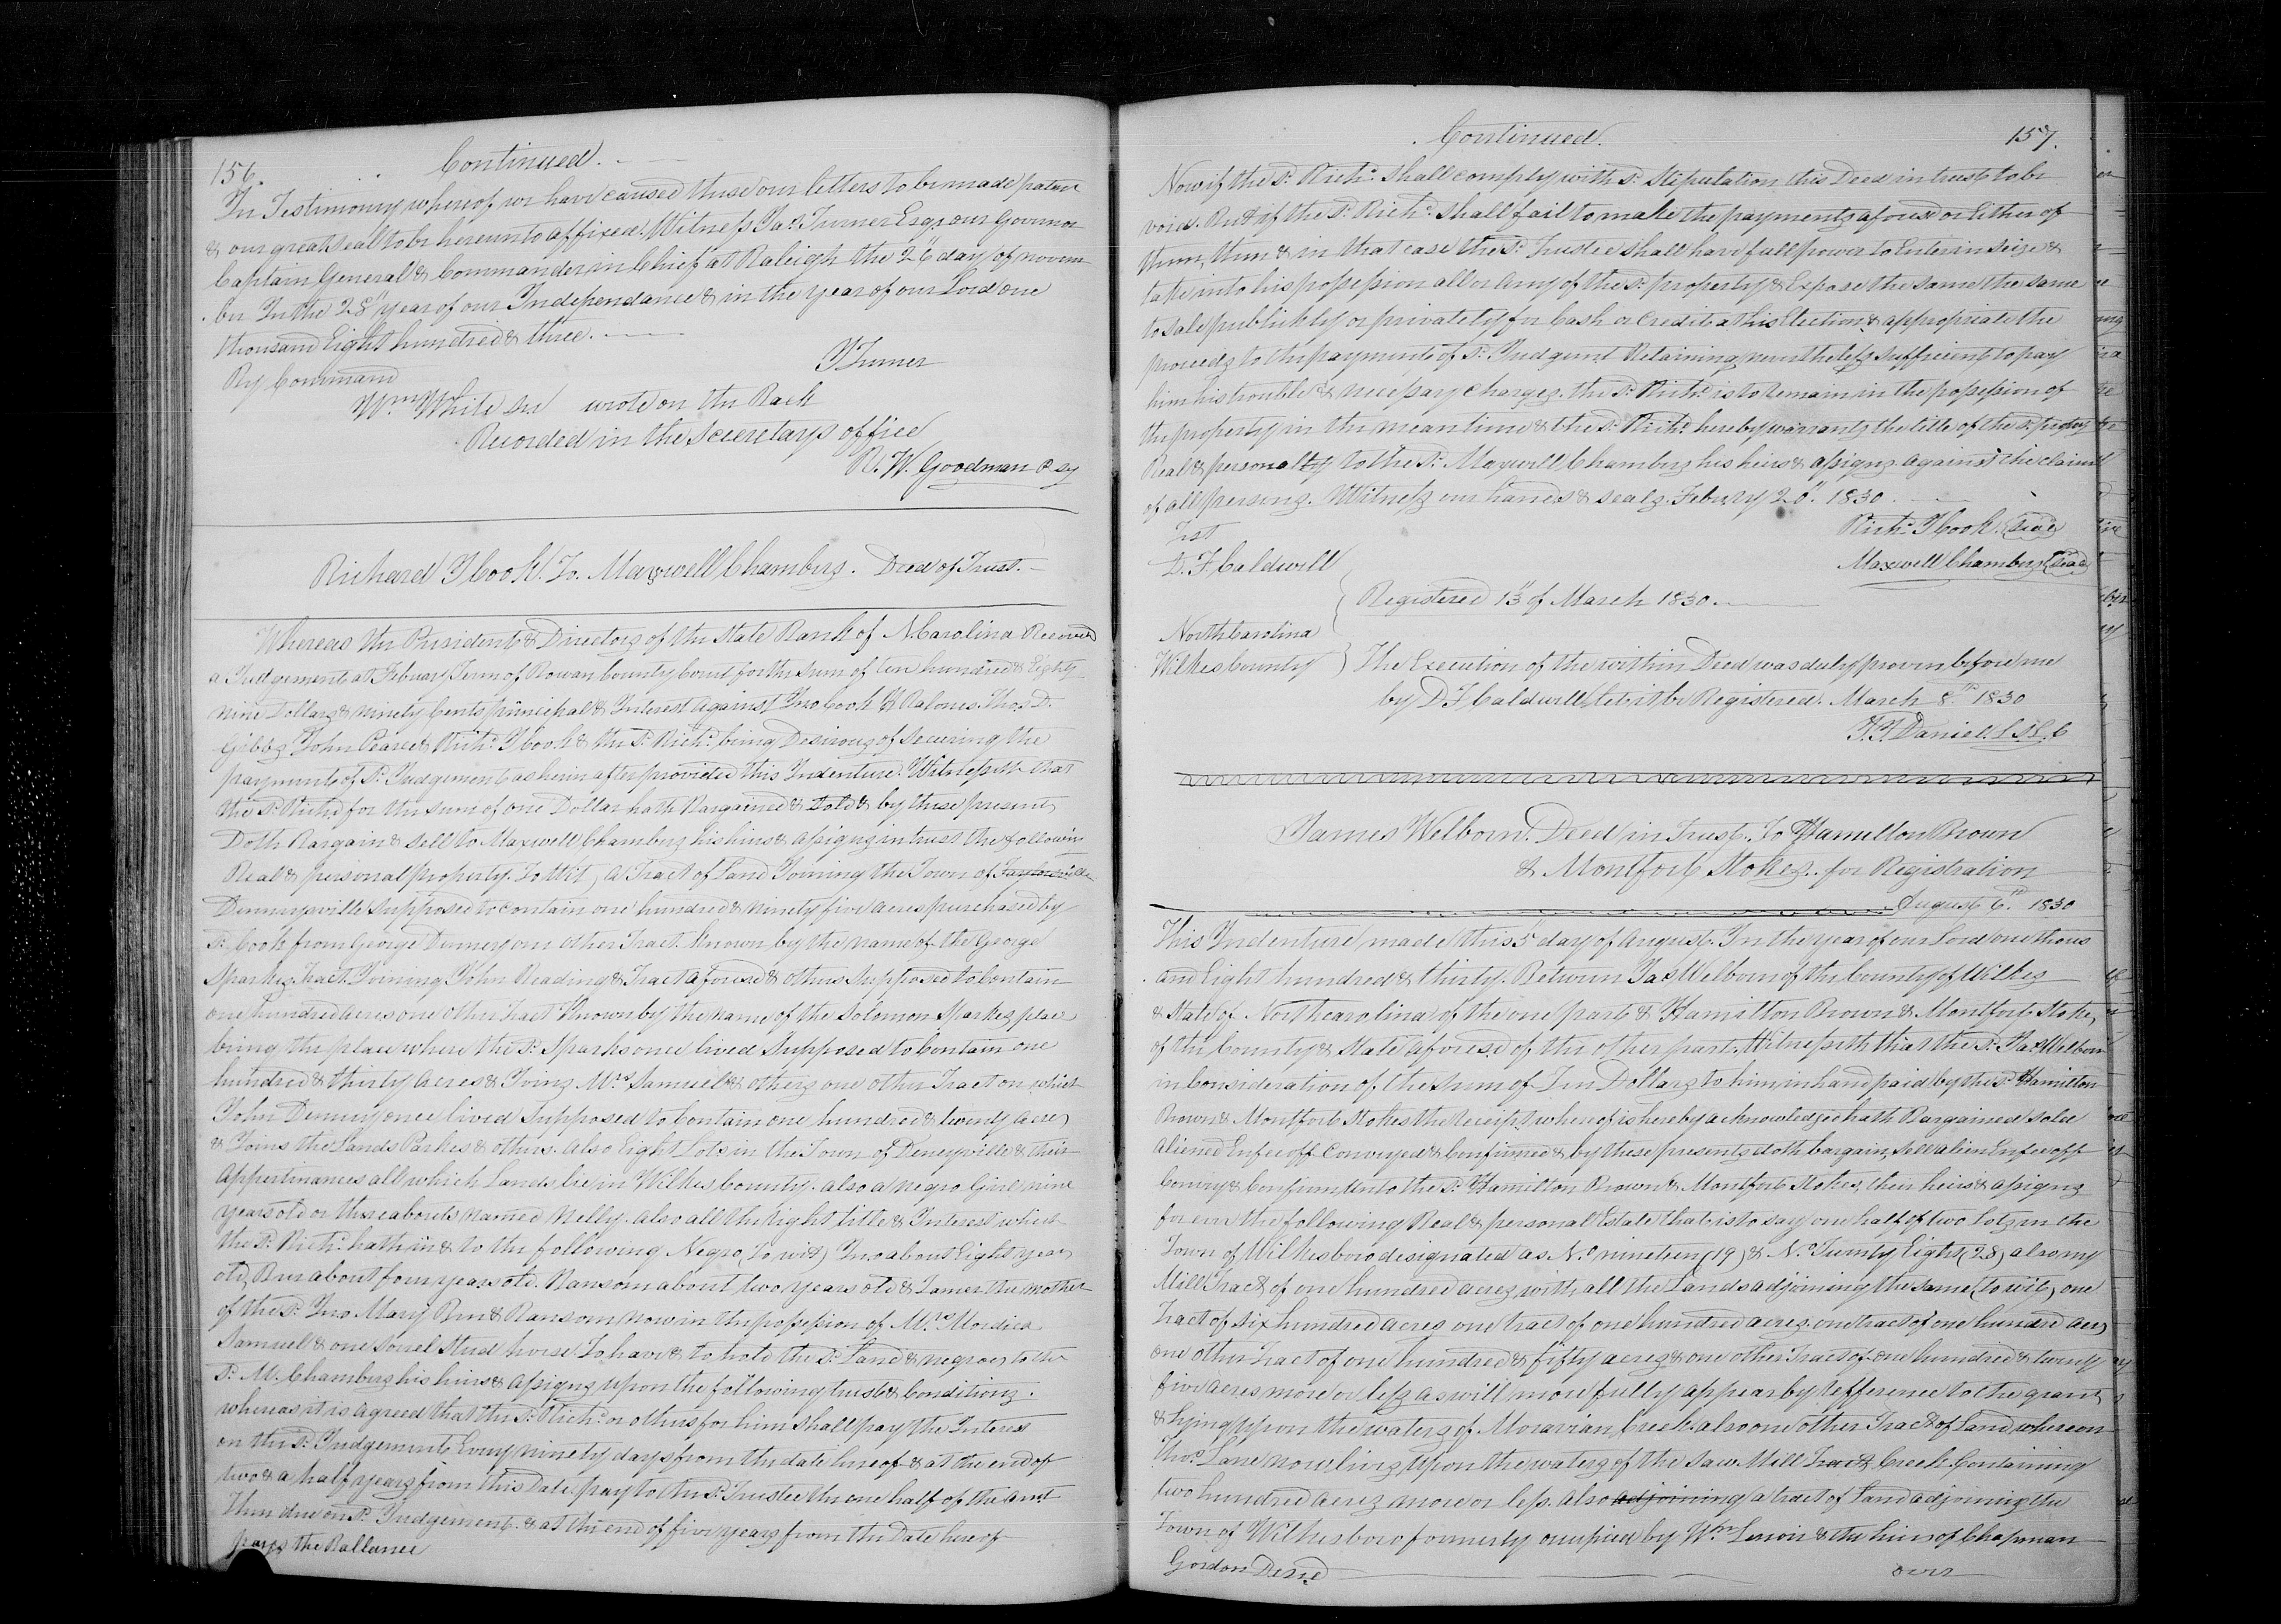 156.
Continued.
In Testimony whereof we have caused these our letters to be made patent
& our great seal to be hereunto affixed. Witness Jas. Turner Esqr our Govornor
Captain General & Commander in Chief at Raleigh the 26 day of novem
ber In the 28 year of our Independance & in the year of our Lord one
thousand Eight hundred & three.
J Turner
By Command
Wm White Sec wrote on the Back
Recorded in the Secretarys office
R. W. Goodman
Richard J Cook. To. Maxwell Chambers. Deed of Trust.
Whereas the President & Directors of the State Bank of N. Carolina Recoverd
a Judgement at Febuary Term of Rowan County Court for the sum of ten hundred & Eighty
nine Dollars & ninety Cents principal & Interest against Jno Cook Thos. D.
Gibbs John Pearce & Richd. J Cook & the sd. Richd. being Desirous of securing the
payment of sd. Judgement as herein after provided this Indenture. Witnesseth that
the sd. Richd for the sum of one Dollar hath Bargained & sold & by these presents
Doth Bargain & sell to Maxwell Chambers his heirs & assigns in trust the followin
Real & personal property. To Wit, A Tract of Land Joining the Town of Taylorsville
Dennysville supposed to contain one hundred & ninety five acres purchased by
sd. Cook from George Denny one other Tract. Known by the name of the George
Sparkes Tract. Joining John Reading & Tract aforesd & others supposed to Contain
one hundred acres one other Tract Known by the name of the Solomon Sparkes place
being the place where the sd. Sparks once lived Supposed to Contain one
hundred & thirty acres & Joing Mrs Samuel & others one other Tract on which
John Denny once lived Supposed to Contain one hundred & twenty acres
& Joins the Lands Parkes & others. also Eight Lots in the Town of Deneyville & their
Appertinances all which Lands lie in Wilkes County. also a negro Girl nine
years old or thereabouts named Nelly. also all the right title & Interest which
the sd. Richd. hath in & to the following Negro, (To wit) Jno about Eight years
old, Ben about four years old. Ransom about two years old & Tamer the mother
of the sd. Jno. Mary Ben & Ransom now in the possession of Mrs Mordica
Samuel & one sorrel stud horse To have & to hold the sd. Land & negroes to the
sd. M. Chambers his heirs & assigns upon the following trust & Conditions.
whereas it is agreed that the sd. Richd. or others for him shall pay the Interest
on the sd. Judgement Every ninety days from the date hereof & at the end of
two & a half years from this Date pay to the sd. Trustee the one half of the amt
then due on sd. Judgement. & at the end of five years from the Date hereof
pays the Ballance
Continued.
157.
Now if the sd. Richd. shall comply with sd. Stipulation this Deed in trust to be
void. But if the sd. Richd. shall fail to make the payments aforesd or Either of
them, then & in that case the sd. Trustee shall have full power to Enter in seize &
take into his possession all or any of the sd. property & Expose the same the same
to sale publickly or privately for Cash or Credit at his Election & appropriate the
proceeds to the payment of sd. Judgemt Retaining nevertheless sufficient to pay
him his trouble & necessary charges. the sd. Richd. is to Remain in the possession of
the property in the mean time & the sd. Richd. hereby warrants the title of the sd. property
Real & personal to the sd. Maxwell Chambers his heirs & assigns against the claims
of all persons. Witness our hands & seals. Febuary 20. 1830.
Test
Richd. J Cook. (Seal)
D. F. Caldwell
Maxwell Chambers (Seal)
Registered 13 of March 1830.
North Carolina
Wilkes County } The Execution of the within Deed was duly proven before me
by D. F Caldwell, let it be Registered. March 8th 1830
J. J. Daniel
James Welborn. Deed in Trust. To Hamilton Brown
& Montfort Stokes. for Registration
August 6th. 1830
This Indenture made this 5 day of August. In the year of our Lord one thous
and Eight hundred & thirty. Between Jas Welborn of the County of Wilkes
& State of North carolina of the one part & Hamilton Brown & Montfort Stokes,
of the County & State aforesd of the other part. Witnesseth that the sd. Jas Welborn
in Consideration of the sum of Ten Dollars to him in hand paid by the sd Hamilton
Brown & Montfort Stokes the receipt whereof is hereby acknowledged hath Bargained sold
aliened Enfeoff Conveyed & Confirmed & by these presents doth bargain, sell alien Enfeoff
Convey & Confirm Unto the sd. Hamilton Brown & Montfort Stokes, their heirs & assigns
for ever the following Real & personal Estate that is to say one half of two lots in the
Town of Wilkesboro designated as No. nineteen (19) & No. Twenty Eight (28) also my
Mill Tract of one hundred acres with all the Lands adjoining the same, (to wit) one
Tract of six hundred acres one tract of one hundred acres. one tract of one hundred acres
one other Tract of one hundred & fifty acres & one other Tract of one hundred & twenty
five acres more or less as will more fully appear by refference to the grants
& lying upon the waters of Moravian Creek also one other Tract of Land whereon
Thos. Lane now lives upon the waters of the Saw Mill Tract Creek Containing
two hundred acres more or less. also adjoining a tract of Land adjoining the
Town of Wilkesboro formerly occupied by Wm Lenoir & the heirs of Chapman
Gordon Desd
over